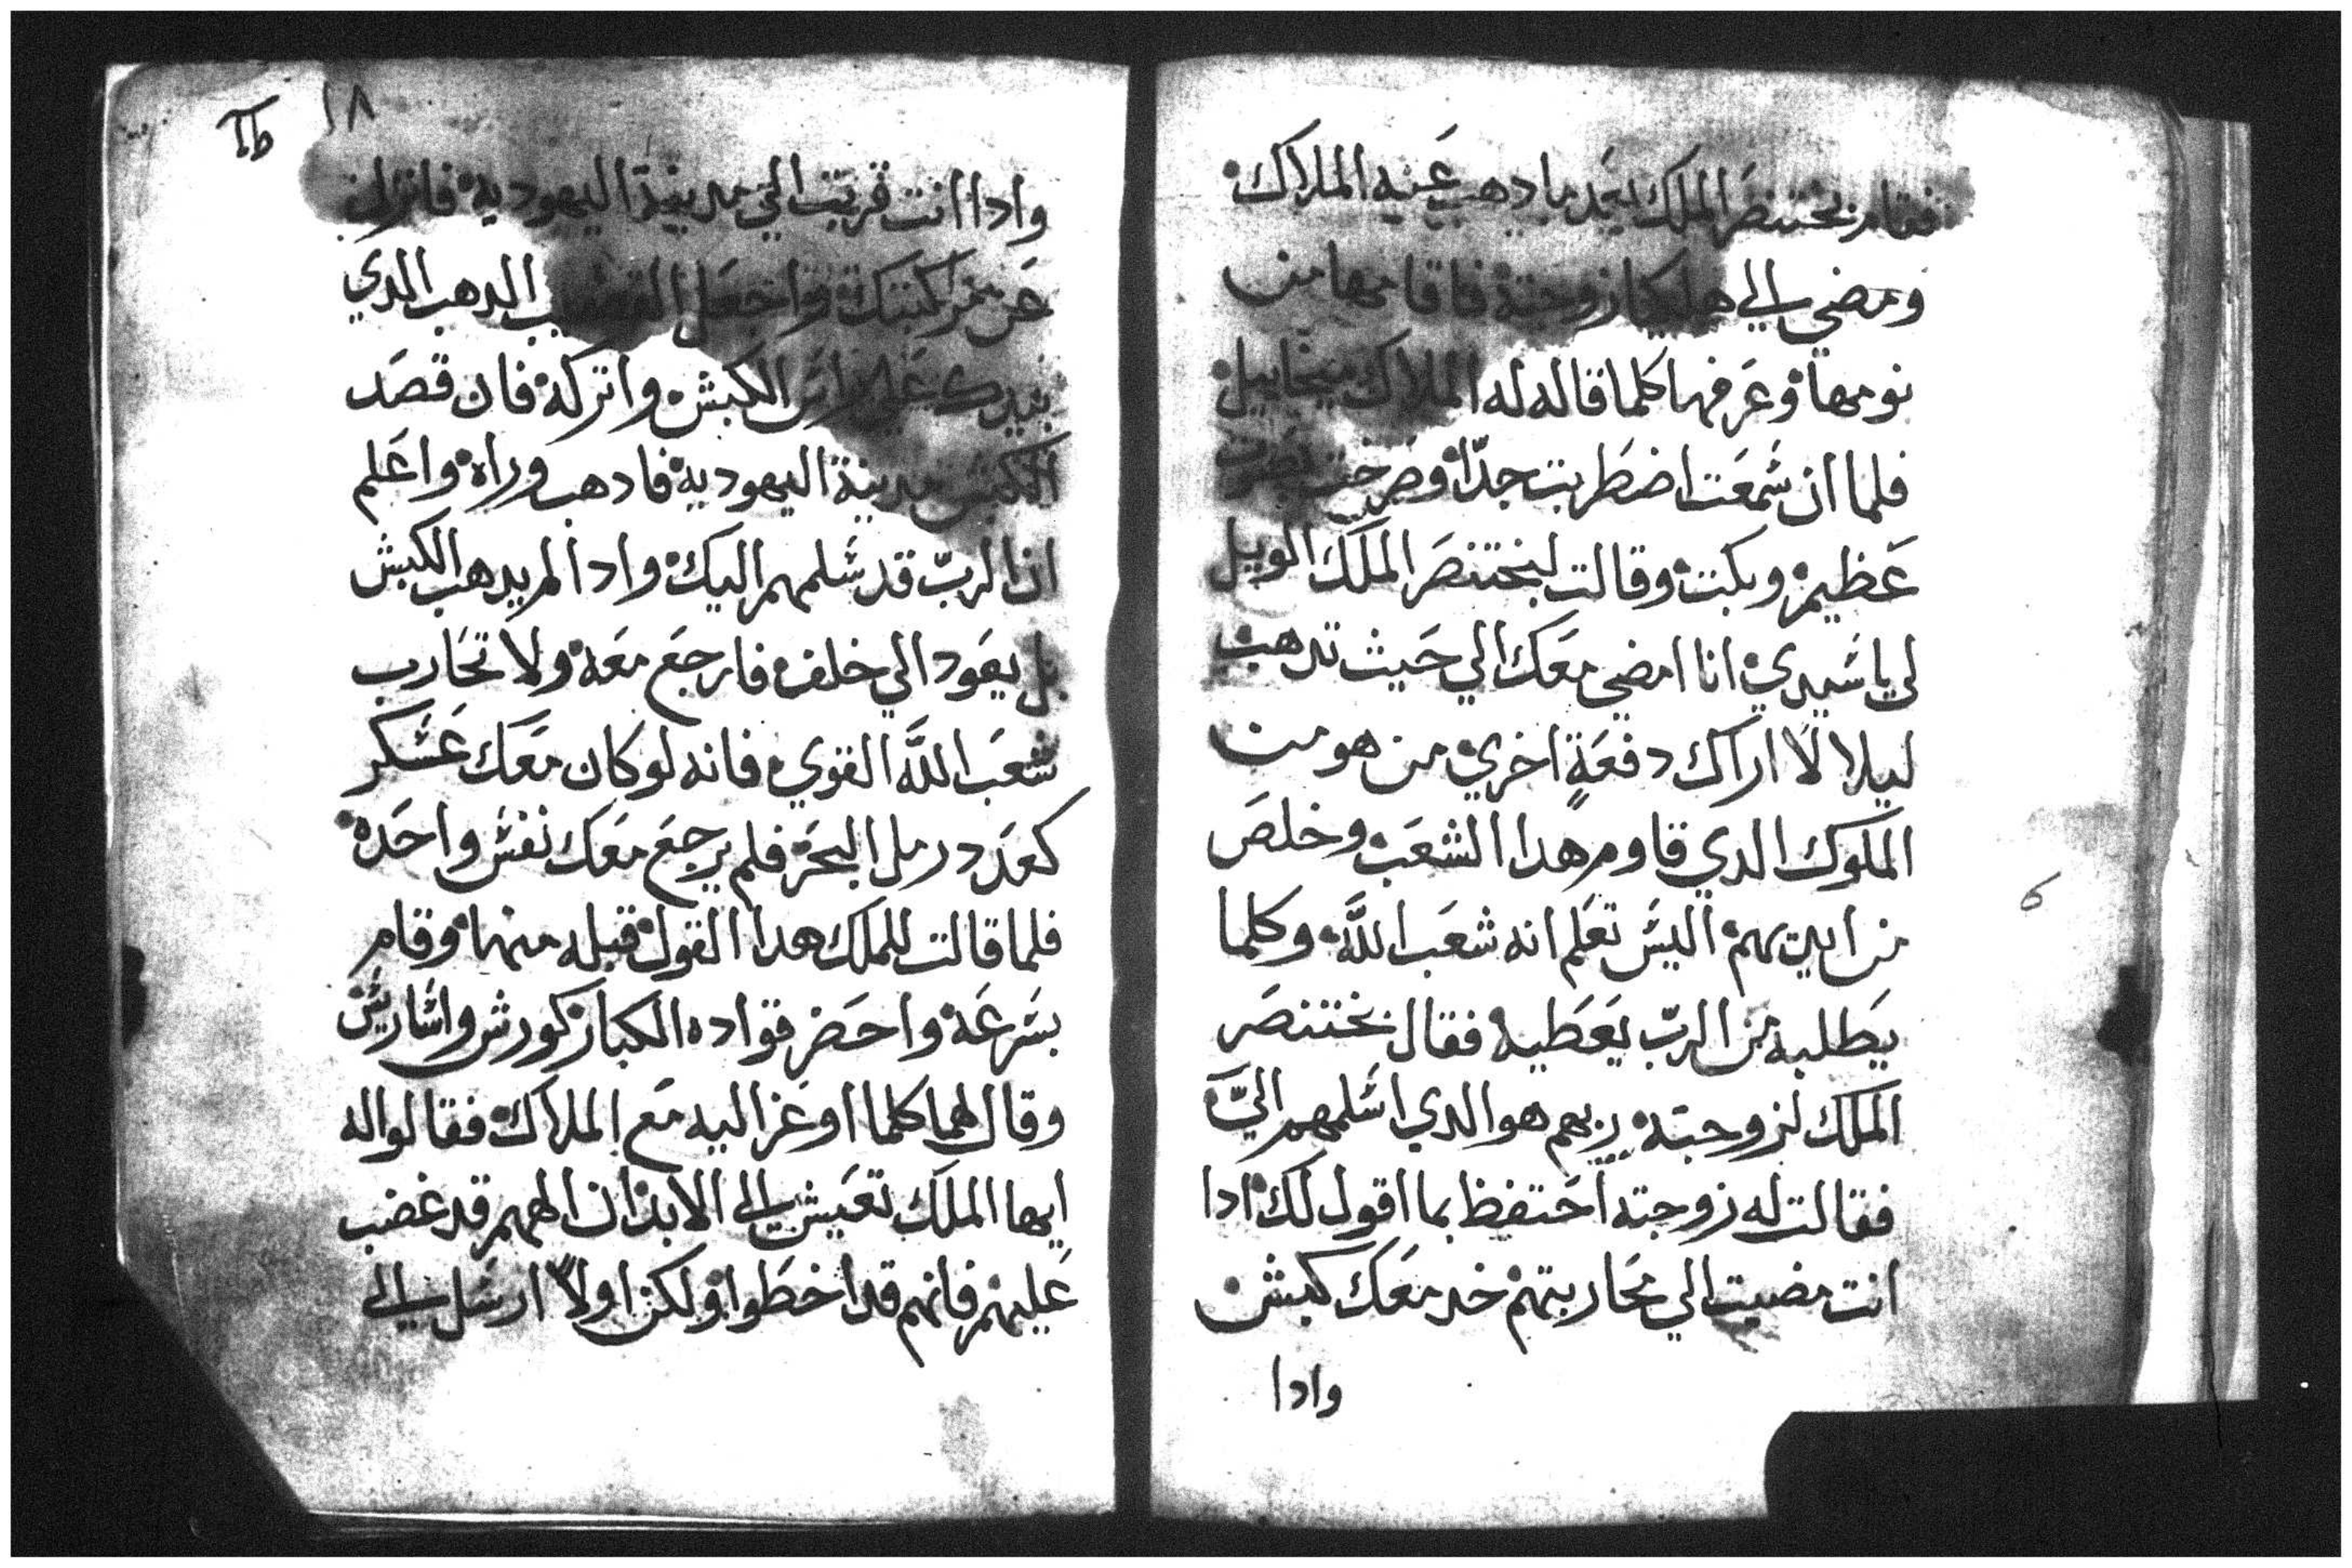 فقام بختنصر الملك بعد ما دهب عنه الملاك
ومضي الي هليكا زوجته فاقامها من
نومها وعرفها كلما قاله له الملاك ميخاييل
فلما ان سمعت اضطربت جدًا وصرخت بصوت
عظيم وبكت وقالت لبختنصر الملك الويل
لي يا سيدي انا امضي معك الي حيث تدهب
ليلا لا اراك دفعةٍ اخري من هو من
الملوك الدي قاوم هدا الشعب وخلص
من ايديهم اليس تعلم انه شعب اللَّه وكلما
يطلبه من الربّ يعطيه فقال بختنصر
الملك لزوجته ربهم هو الدي اسلمهم اليَّ
فقالت له زوجته احتفظ بما اقول لك ادا
انت مضيت الي محاربتهم خد معك كبش
وادا
١٨
وادا انت قربت الي مدينة اليهودية فانزل
عن مركبتك واجعل القضيب الدهب الدي
بيدك علي راس الكبش واتركه فان قصد
الكبش مدينة اليهودية فادهب وراه واعلم
ان الربّ قد سلمهم اليك وادا لم يدهب الكبش
بل يعود الي خلف فارجع معه ولا تحارب
شعب اللَّه القوي فانه لو كان معك عسكر
كعدد رمل البحر فلم يرجع معك نفس واحده
فلما قالت للملك هدا القول قبله منها وقام
بسرعة واحضر قواده الكبار كورش واشاريس
وقال لهما كلما اوعز اليه مع الملاك فقالوا له
ايها الملك تعيش الي الابد ان الههم قد غضب
عليهم فانهم قد اخطوا ولكن اولاً ارسل الي